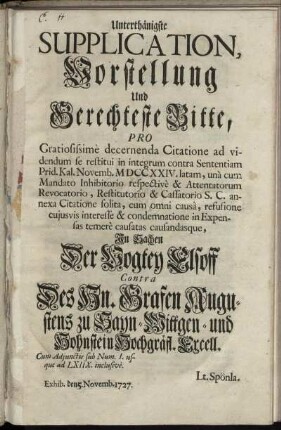 Unterthänigste
SUPPLICATION,
Vorstellung
Und
Gerechteste Bitte,
PRO
Gratiosissimè decernenda Citatione ad vi-
dendum se restitui in integrum contra Sententiam
Prid. Kal. Novemb. MDCCXXIV. latam, unà cum
Mandato Inhibitorio respectivè & Attentatorum
Revocatorio, Restitutorio & Cassatorio S. C. an-
nexa Citatione solita, cum omni causâ, refusione
cujusvis interesse & condemnatione in Expen-
sas temerè causatas causandasque,
In Sachen
Der Vogtey Elsoff
Contra
Des Hn. Grafen Augu-
stens zu Sayn-Wittgen- und
Hohnstein Hochgräfl. Excell.
Cum Adjunctis sub Num. I. us-
que ad LXIIX. inclusivè.
Lt. Sponla.
Exhib. den 5. Novemb. 1727.